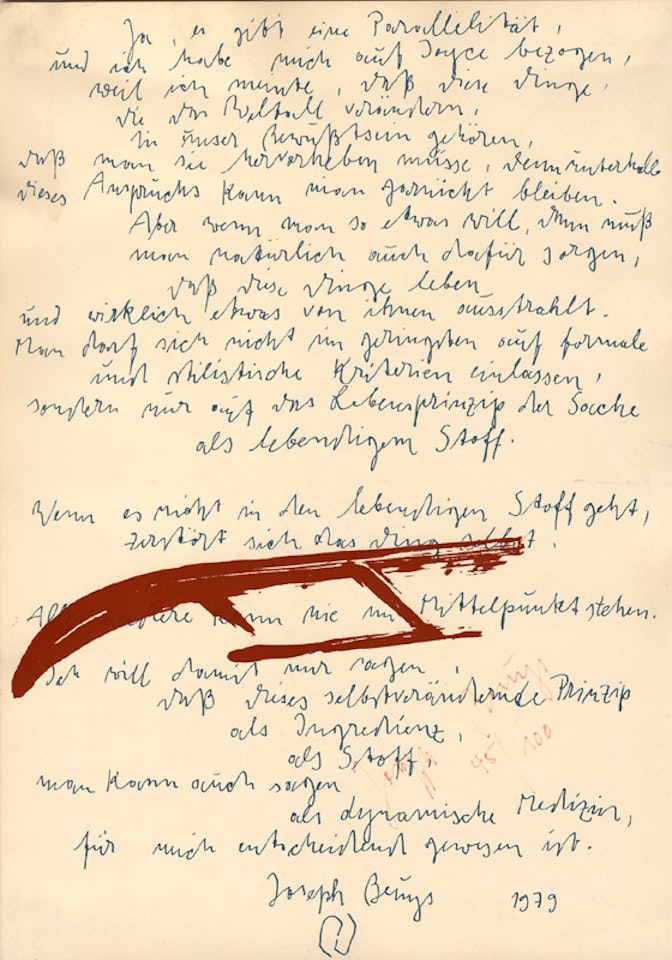 Ja, es gibt eine Parallelität,
und ich habe mich auf Joyce bezogen,
weil ich meinte, daß diese Dinge,
die das Weltall verändern,
in unser Bewußtsein gehören,
daß man sie hervorheben müsse, denn unterhalb
dieses Anspruchs kann man garnicht bleiben.
Aber wenn man so etwas will, dann muß
man natürlich auch dafür sorgen,
daß diese Dinge leben
und wirklich etwas von ihnen ausstrahlt.
Man darf sich nicht im geringsten auf formale
und stilistische Kriterien einlassen,
sondern nur auf das Lebensprinzip der Sache
als lebendigem Stoff.
Wenn es nicht in den lebendigen Stoff geht,
zerstört sich das Ding selbst.
nie im Mittelpunkt stehen.
Ich will damit nur sagen,
daß dieses selbstverändernde Prinzip
als Ingredienz,
als Stoff,
man kann auch sagen
als dynamische Medizin,
für mich entscheidend gewesen ist.
Joseph Beuys 1979
Joseph Beuys
45/100